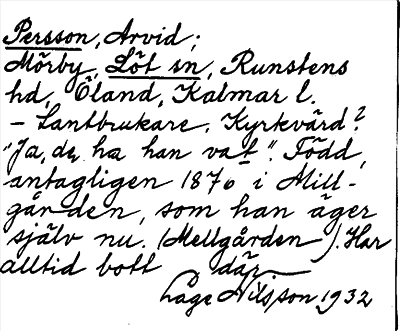 Persson, Arvid;
Mörby, Löt sn, Runstens
hd, Öland, Kalmar l.
– Lantbrukare. Kyrkvärd?
"Ja, de, ha han vat". Född,
antagligen 1876 i Mill-
gården, som han äger
själv nu. (Mellgården). Har
alltid bott där.
Lage Nilsson 1932